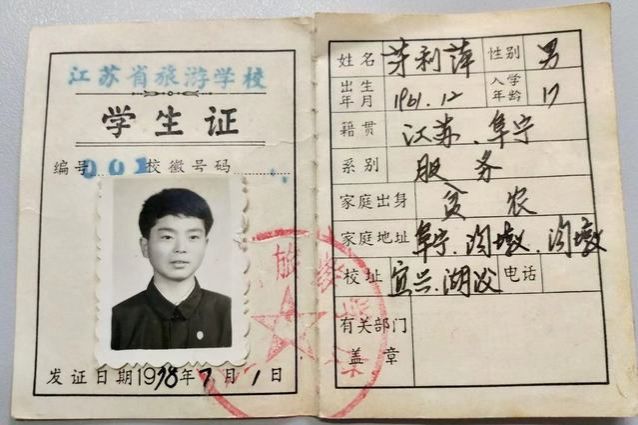 江苏省旅游学校
学生证
编号 001 校徽号码
发证日期1978年7月1日
姓名 芳利萍 性别 男
出生年月 1961.12 入学年龄 17
籍贯 江苏、阜宁
系别 服务
家庭出身 贫农
家庭地址 阜宁、沟墩、沟墩
校址 宜兴、湖㳇 电话
有关部门
盖章